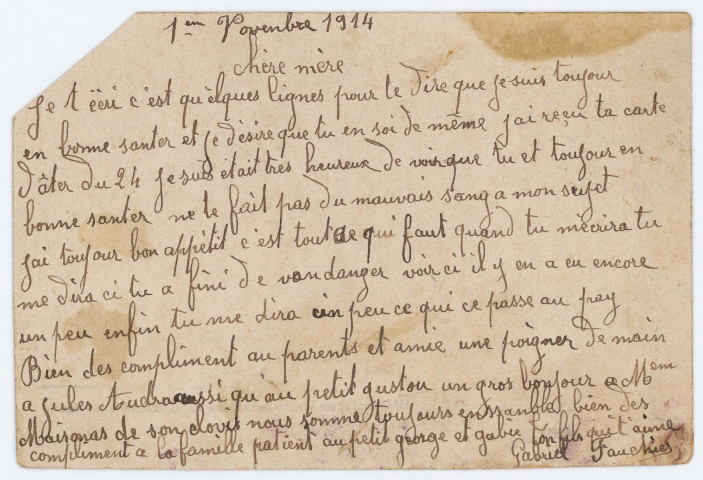 1em Novenbre 1914
chère mère
Je t ècri c'est quèlques lignes pour te dire que je suis toujour
en bonne santer et je désire que tu en soi de même j'ai reçu ta carte
d'âter du 24 je suis était très heureux de voir que tu et toujour en
bonne santer ne te fait pas du mauvais sang a mon sujet
j'ai toujour bon appétit c'est tout ce qui faut quand tu mécrira tu
me dira ci tu a fini de vandanger voir ci il y en a eu encore
un peu enfin tu me dira un peu ce qui ce passe au pay
Bien des compliment au parents et amie une poigner de main
a Jules Audra aussi qu'au petit guston un gros bonjour a Mem
Maisonas de son clovis nous somme toujours enssamble bien des
compliment a la famille patient au petit george et gabie ton fils qui t'aime
Gabriel Fauchier